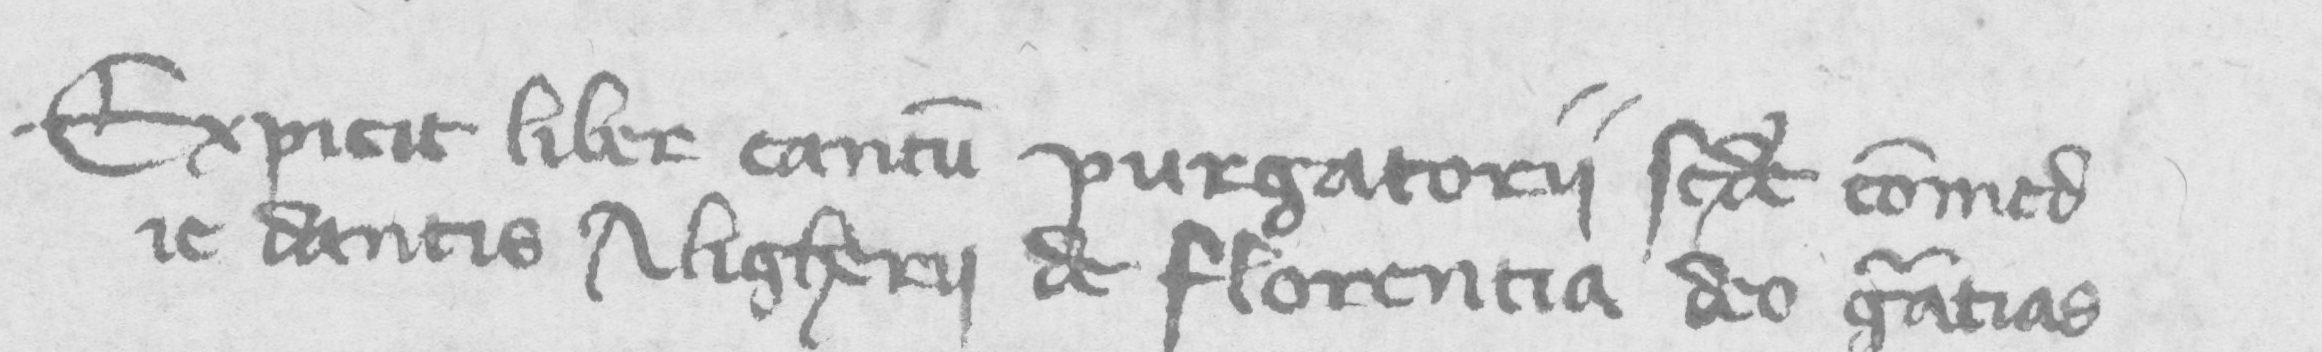 Expicit liber cantū purgatorii scd̄e cōmed
ie dantis Aligherii de florentia deo gr̄atias